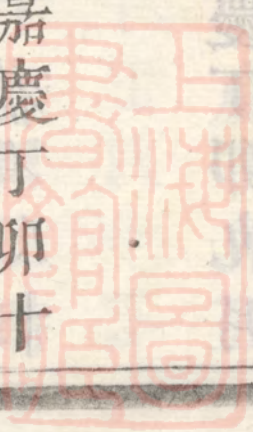 嘉慶丁卯十
上海圖
書館藏